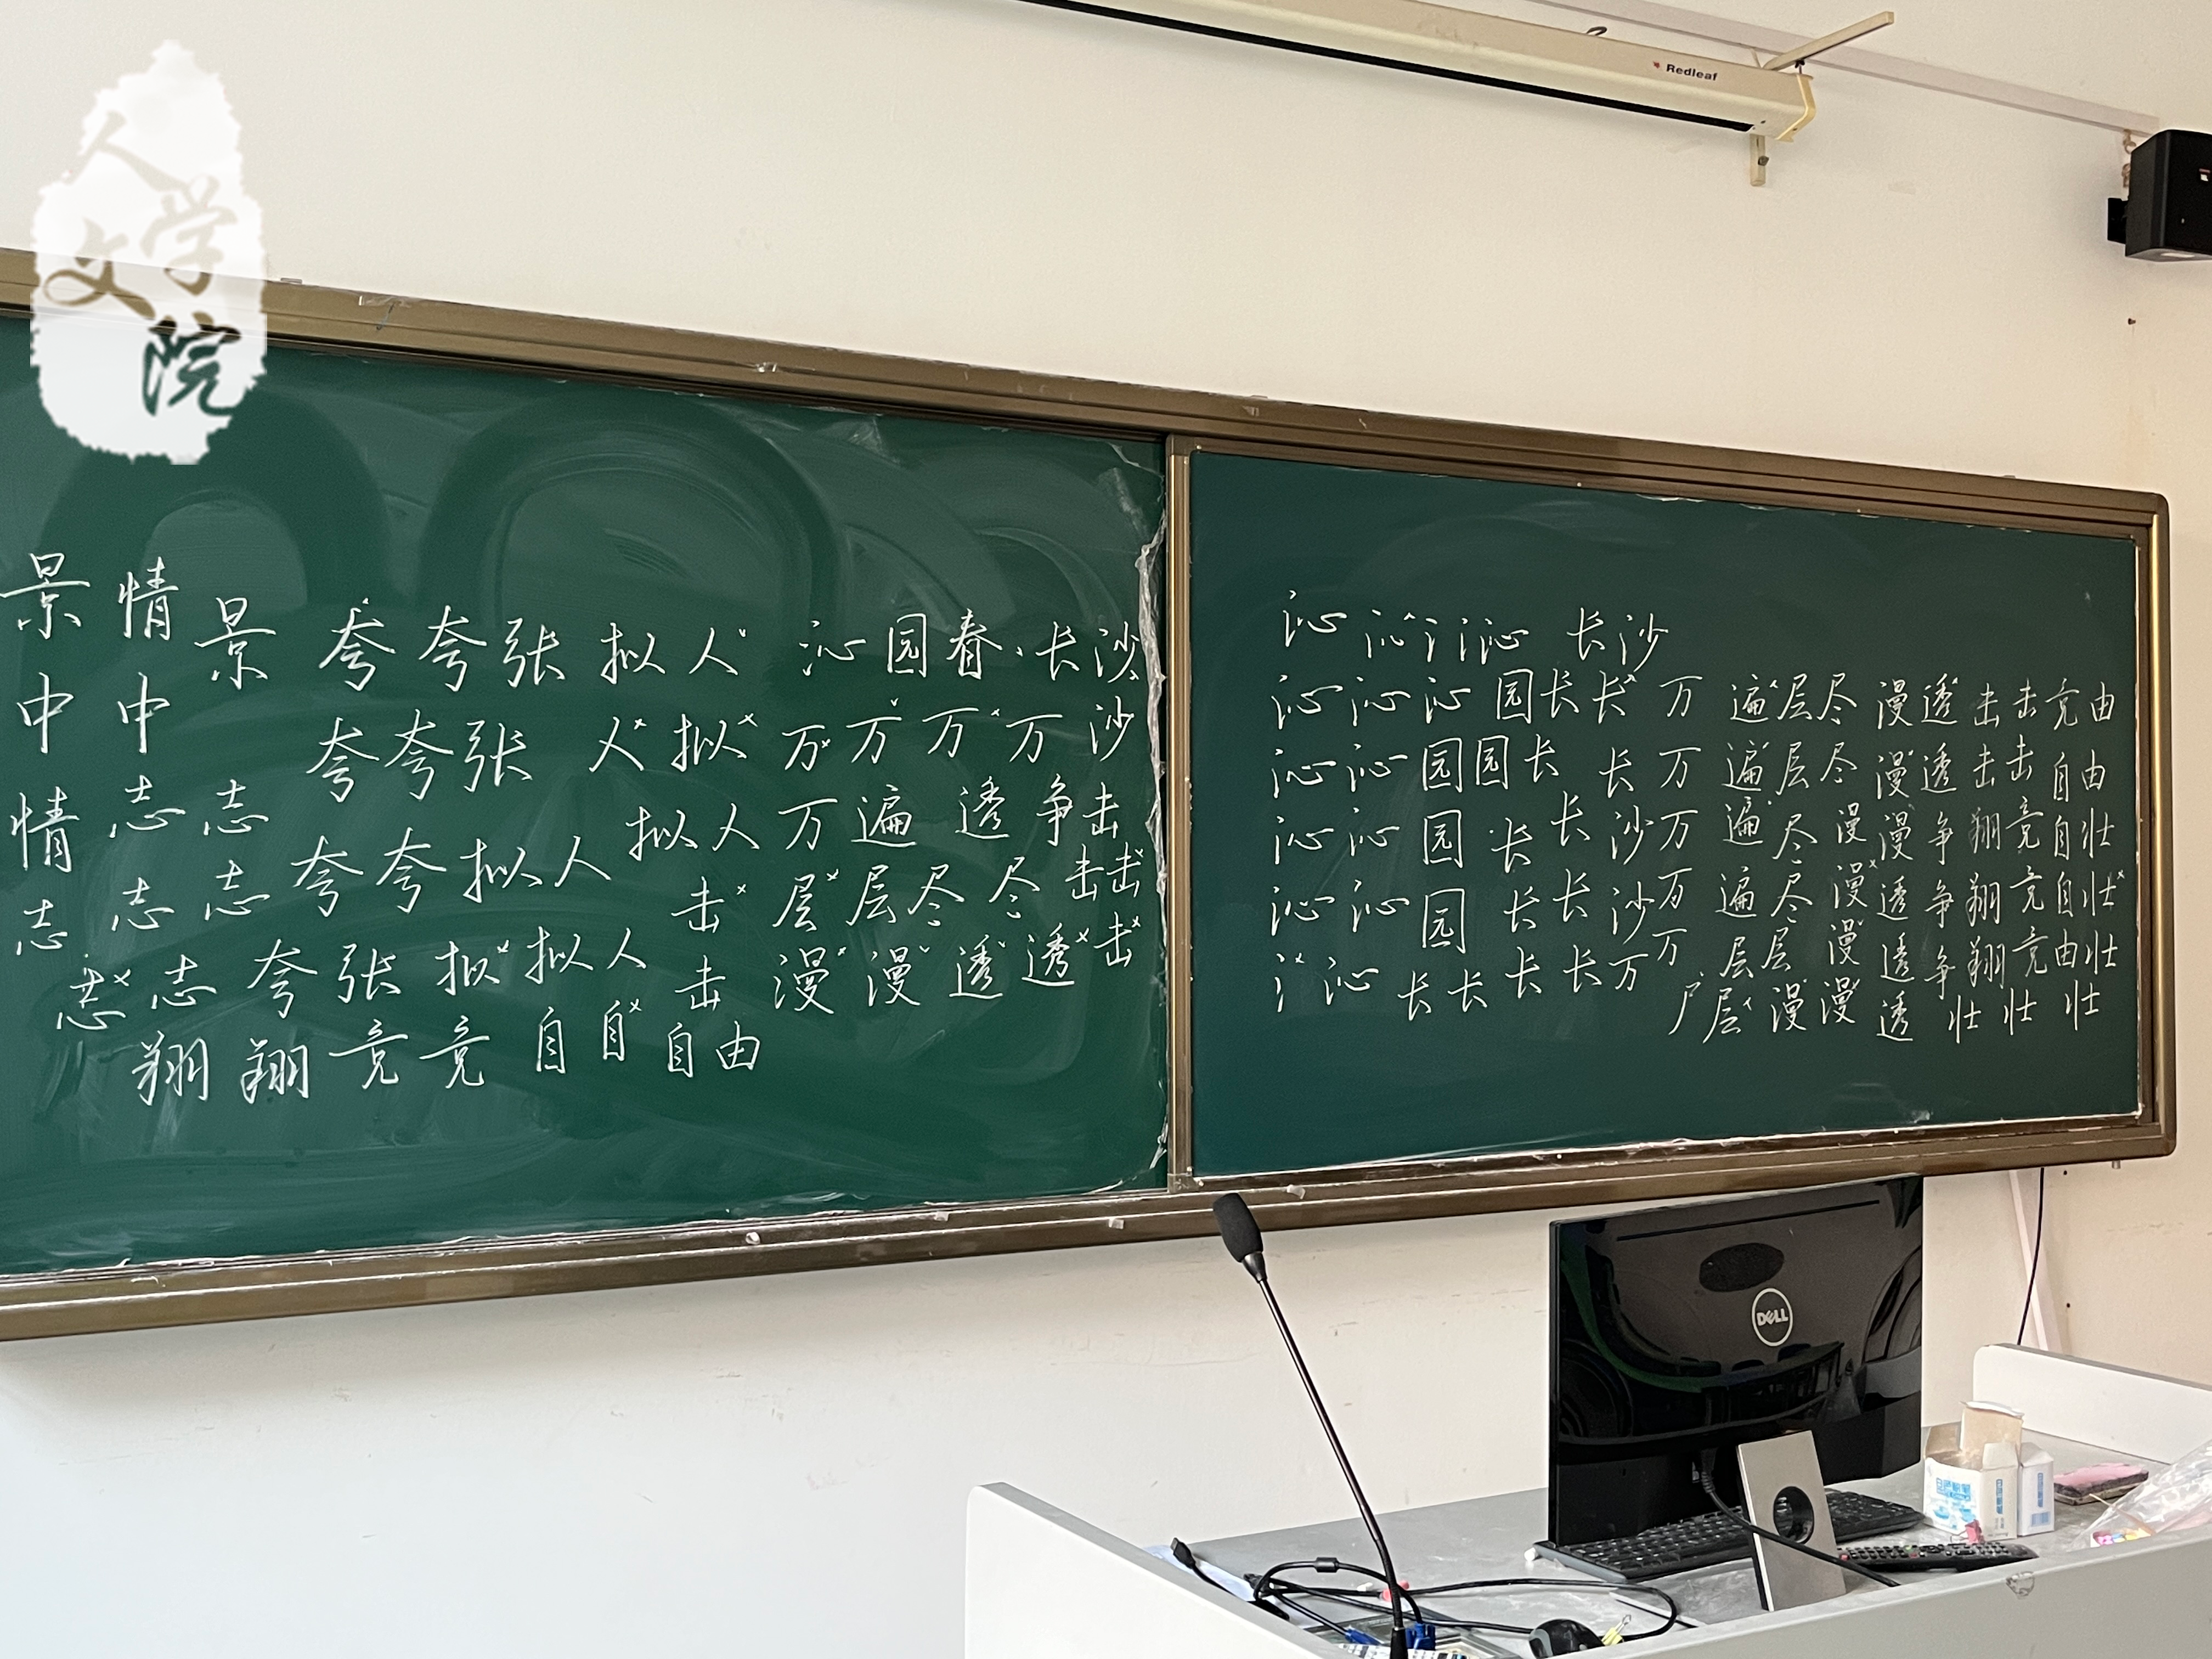 人文学院
Redleaf
景 情 景 夸 夸 张 拟 人 沁 园 春 · 长 沙
中 中 夸 夸 张 人 拟 万 万 万 万 沙
情 志 志 夸 夸 拟 人 拟 人 万 遍 透 争 击
志 志 志 击 层 层 尽 尽 击 击
志 志 夸 张 拟 拟 人 击 漫 漫 透 透 击
翔 翔 竞 竞 自 自 自 由
沁 沁 氵 氵 沁 长 沙
沁 沁 沁 园 长 长 万 遍 层 尽 漫 透 击 击 竞 由
沁 沁 园 园 长 长 万 遍 层 尽 漫 透 击 击 自 由
沁 沁 园 长 长 沙 万 遍 尽 漫 漫 争 翔 竞 自 壮
沁 沁 园 长 长 沙 万 遍 尽 漫 透 争 翔 竞 自 壮
氵 沁 长 长 长 长 万 万 层 层 漫 透 争 翔 竞 由 壮
尸 层 漫 漫 透 壮 壮 壮
DELL